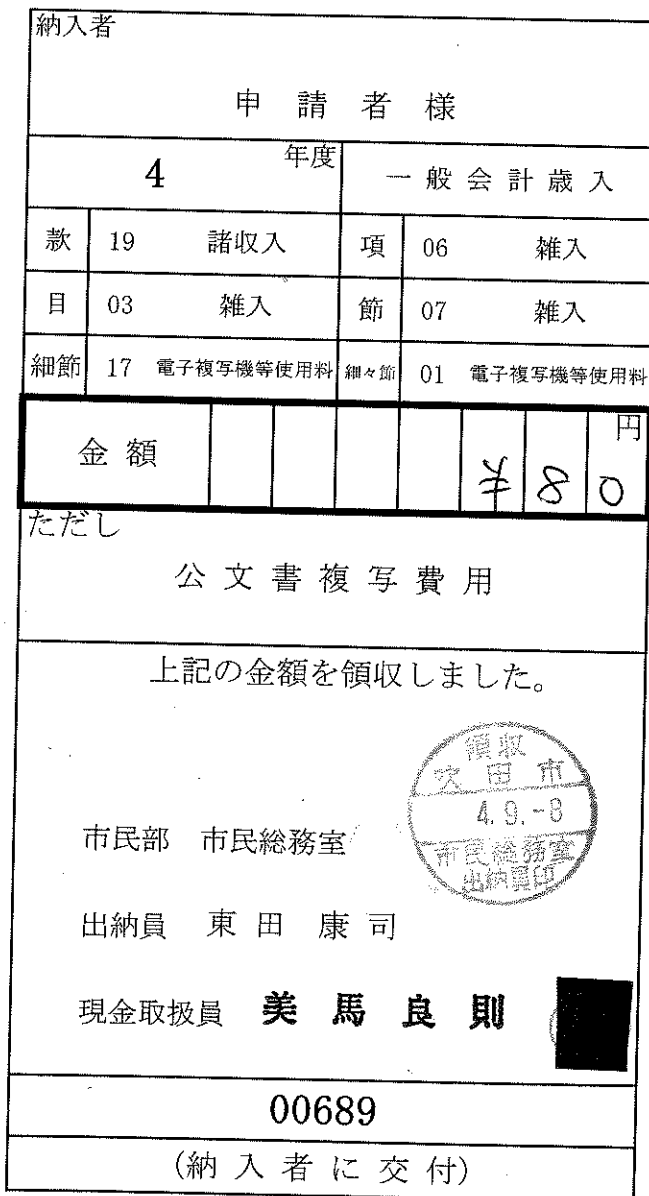 納入者
申請者様
4 年度 一般会計歳入
款 19 諸収入 項 06 雑入
目 03 雑入 節 07 雑入
細節 17 電子複写機等使用料 細々節 01 電子複写機等使用料
金額 ¥80 円
ただし
公文書複写費用
上記の金額を領収しました。
領収
吹田市
4.9.-8
市民総務室
出納員印
市民部 市民総務室
出納員 東田康司
現金取扱員 美馬良則
00689
(納入者に交付)